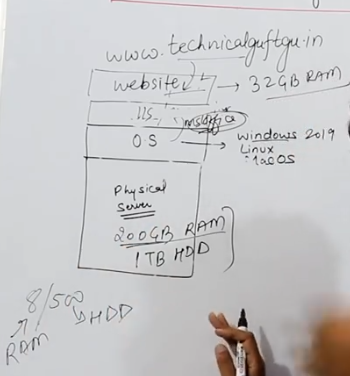 www.technicalguftgu.in
website
→ 32GB RAM
IIS
OS → windows 2019
Linux
MacOS
Physical
Server
200GB RAM
1TB HDD
8/500
RAM HDD